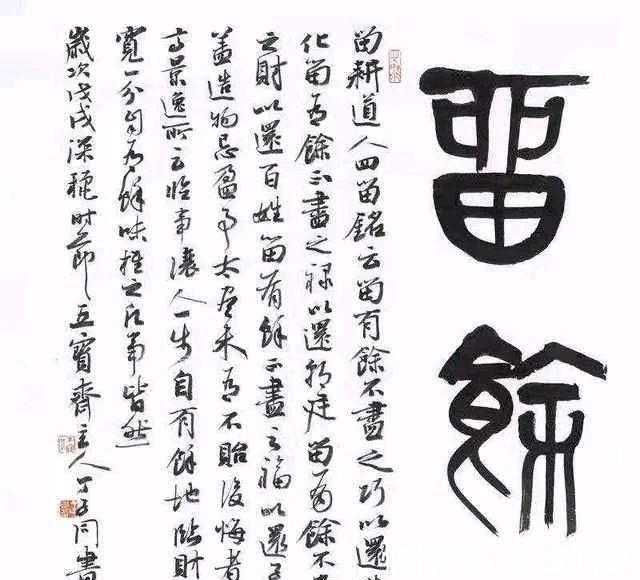 畱餘
留耕道人四留銘云留有餘不盡之巧以還
化留有餘不盡之祿以還朝廷留有餘不
之財以還百姓留有餘不盡之福以還子
蓋造物忌盈事太盡未有不貽後悔者
高景逸所云臨事讓人一步自有餘地臨財
寬一分自有餘味推之凡事皆然
歲次戊戌深穐時節五寶齋主人丁同書